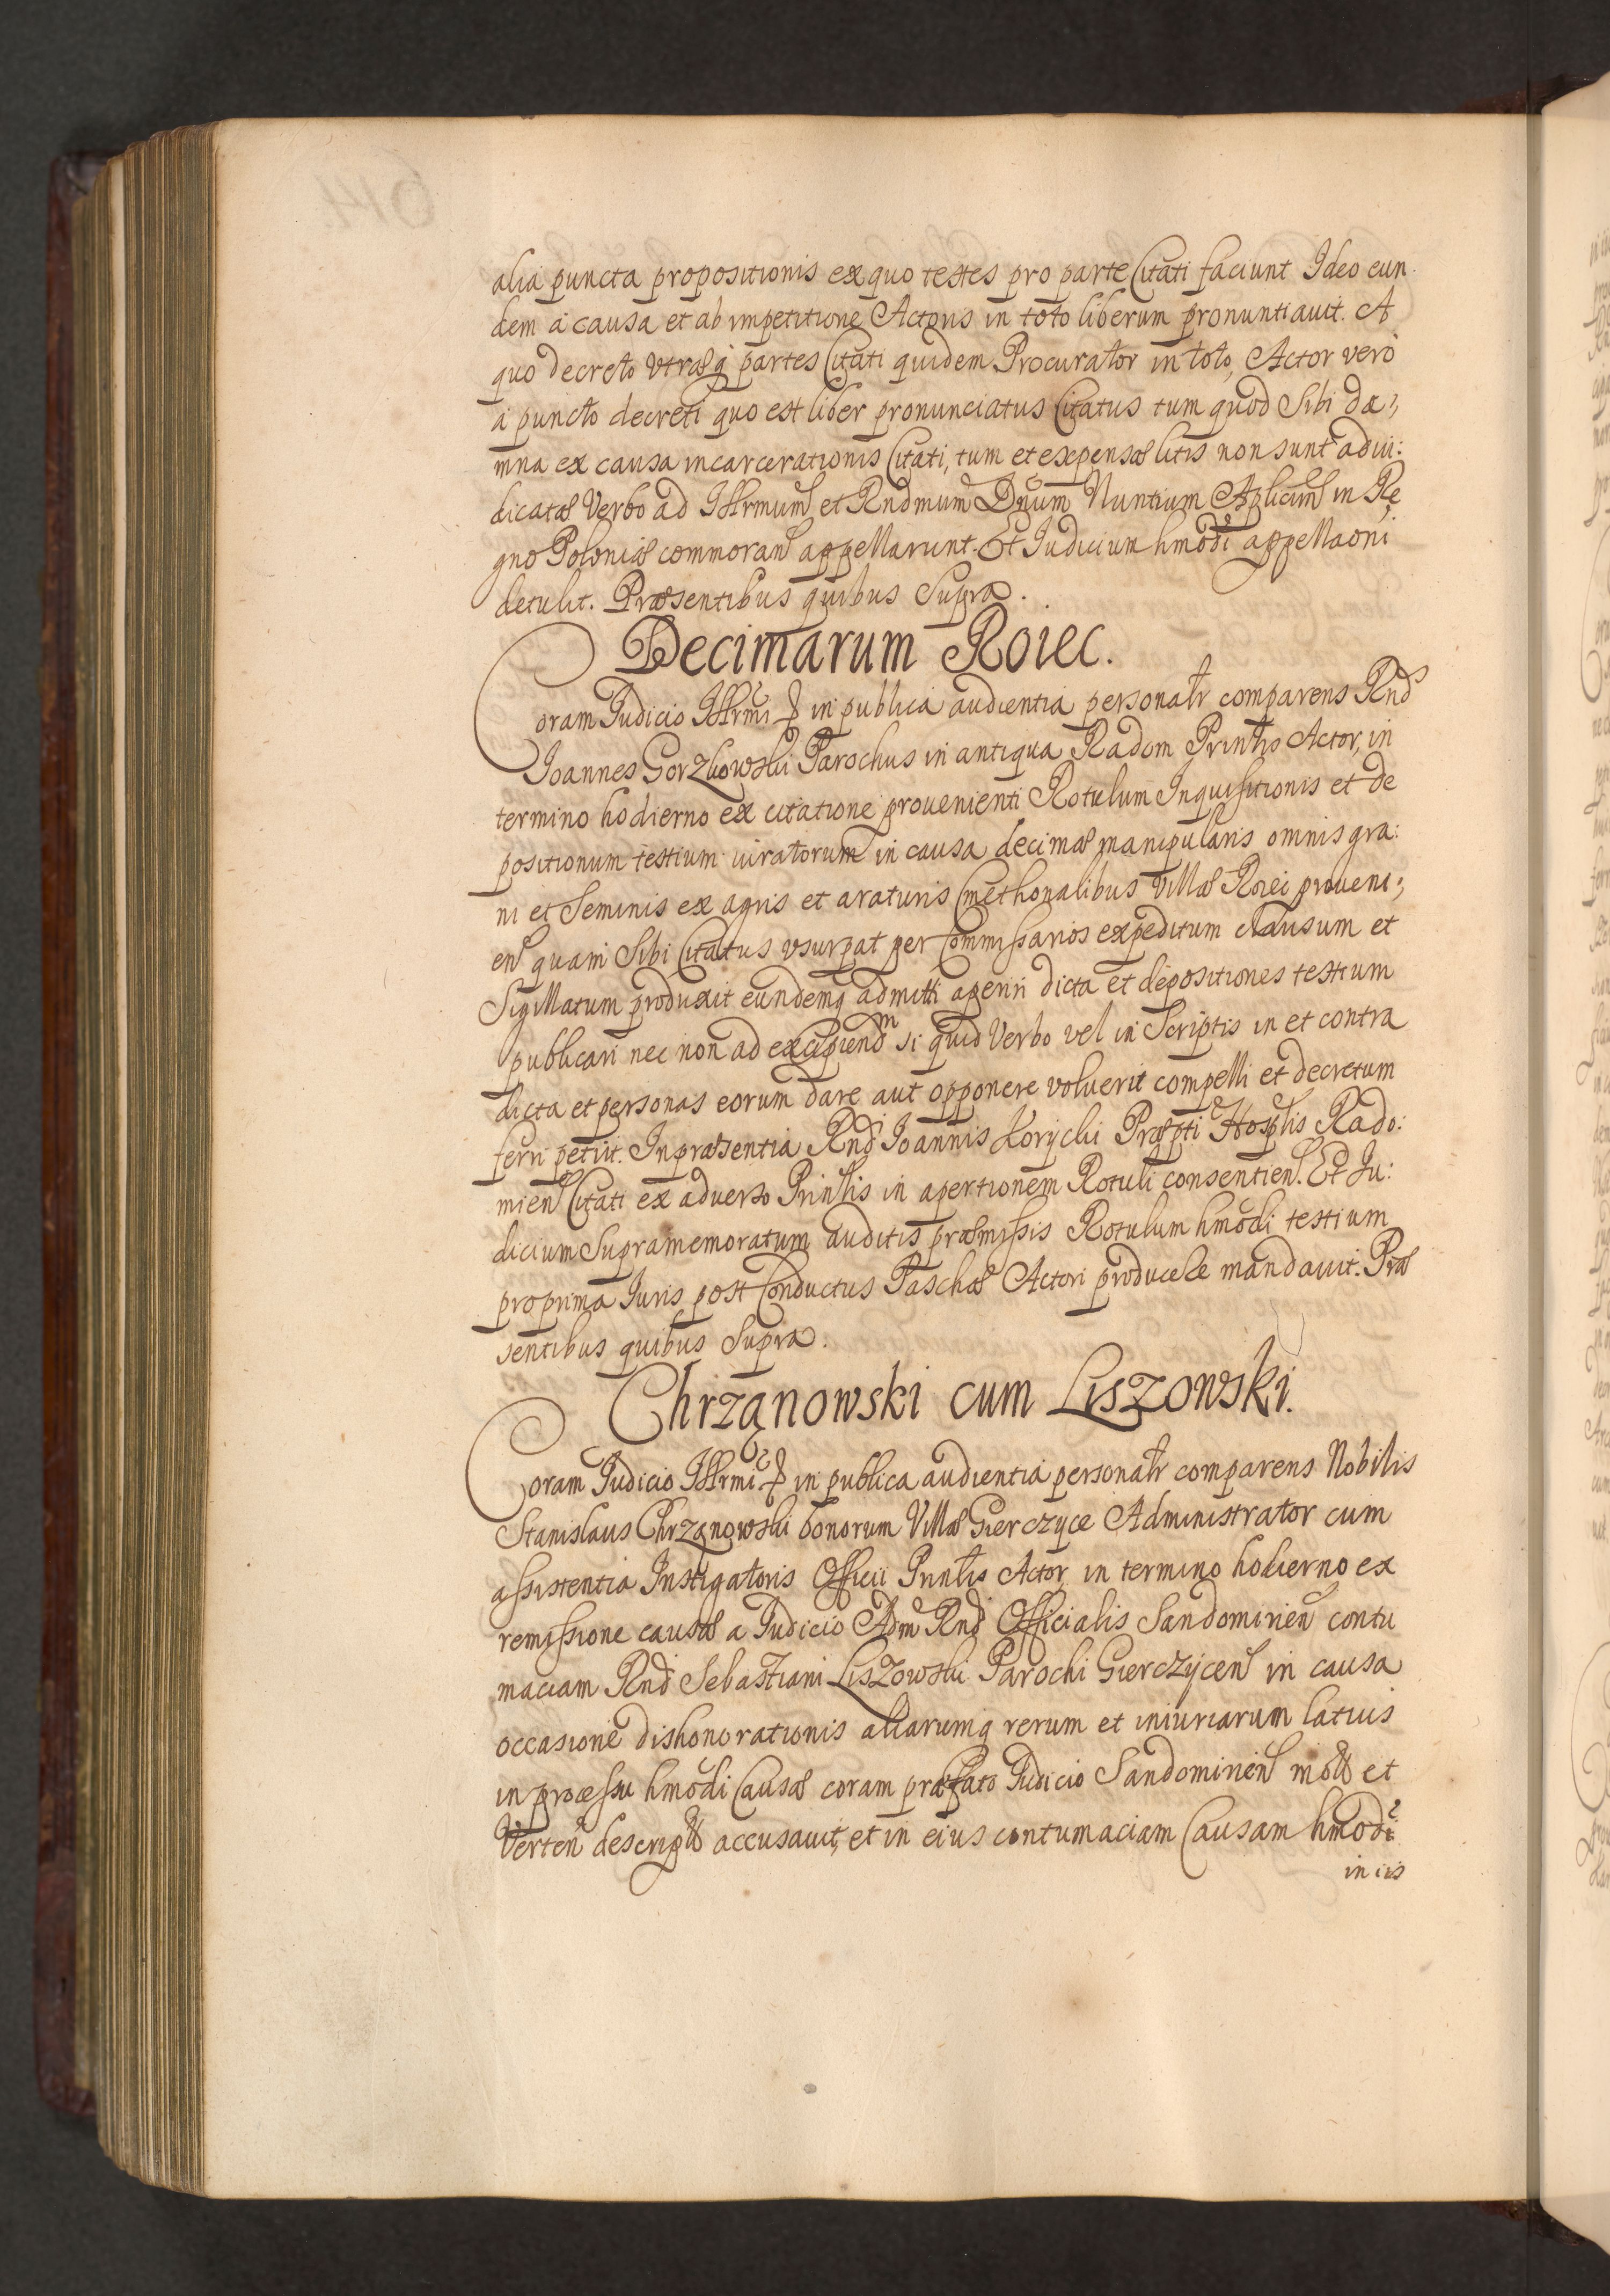 alia puncta propositionis ex quo testes pro parte Citati faciunt Ideo eun
dem a causa et ab impetitione Actoris in toto liberum pronuntiauit. A
quo decreto vtræq partes Citati quidem Procurator in toto, Actor vero
a puncto decreti quo est liber pronunciatus Citatus tum quod Sibi da:
mna ex causa incarcerationis Citati, tum et expensæ litis non sunt adiu:
dicatæ Verbo ad Illrmum et Rndmum Dnum Nuntium Aplicum in Re
gno Poloniæ commoran appellarunt. Et Iudicium hmodi appellaoni
detulit. Præsentibus quibus Supra.
Decimarum Roiec.
Coram Iudicio Illrmi & in publica audientia personalr comparens Rnd
Ioannes Gorzkowski Parochus in antiqua Radom Prinlis Actor, in
termino hodierno ex citatione prouenienti Rotulum Inquisitionis et de
positionum testium iuratorum in causa decimæ manipularis omnis gra:
ni et Seminis ex agris et araturis Cmethonalibus Villæ Roiei proueni:
en quam Sibi Citatus vsurpat per Commissarios expeditum clausum et
Sigillatum produxit eundemq admitti aperiri dicta et depositiones testium
publicari nec non ad excipiendm si quid Verbo vel in Scriptis in et contra
dicta et personas eorum dare aut opponere voluerit compelli et decretum
ferri petiit. In præsentia Rndi Ioannis Korycki Præpti Hosplis Rado:
mien Citati ex aduerso Prinlis in apertionem Rotuli consentien. Et Iu:
dicium Supramemoratum auditis præmissis Rotulum hmodi testium
pro prima Iuris post Conductus Paschæ Actori producere mandauit. Præ
sentibus quibus Supra.
Chrząnowski cum Liszowski.
Coram Iudicio Illrmi & in publica audientia personalr comparens Nobilis
Stanislaus Chrząnowski bonorum Villæ Gierczyce Administrator cum
assistentia Instigatoris Officii Prinlis Actor in termino hodierno ex
remissione causæ a Iudicio Adm Rndi Officialis Sandomirien contu
maciam Rndi Sebastiani Liszowski Parochi Gierczycen in causa
occasione dishonorationis aliarumq rerum et iniuriarum latius
in processu hmodi Causæ coram præfato Iudicio Sandomirien et
Verten accusauit, et in eius contumaciam Causam hmodi
in iis